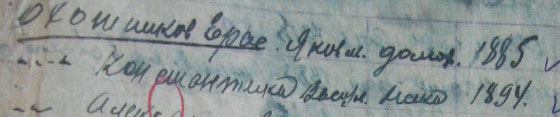 Охотников Ерас. Яковл. домов. 1885
-"- Константина Васил. жена 1894.
-"- Алекс